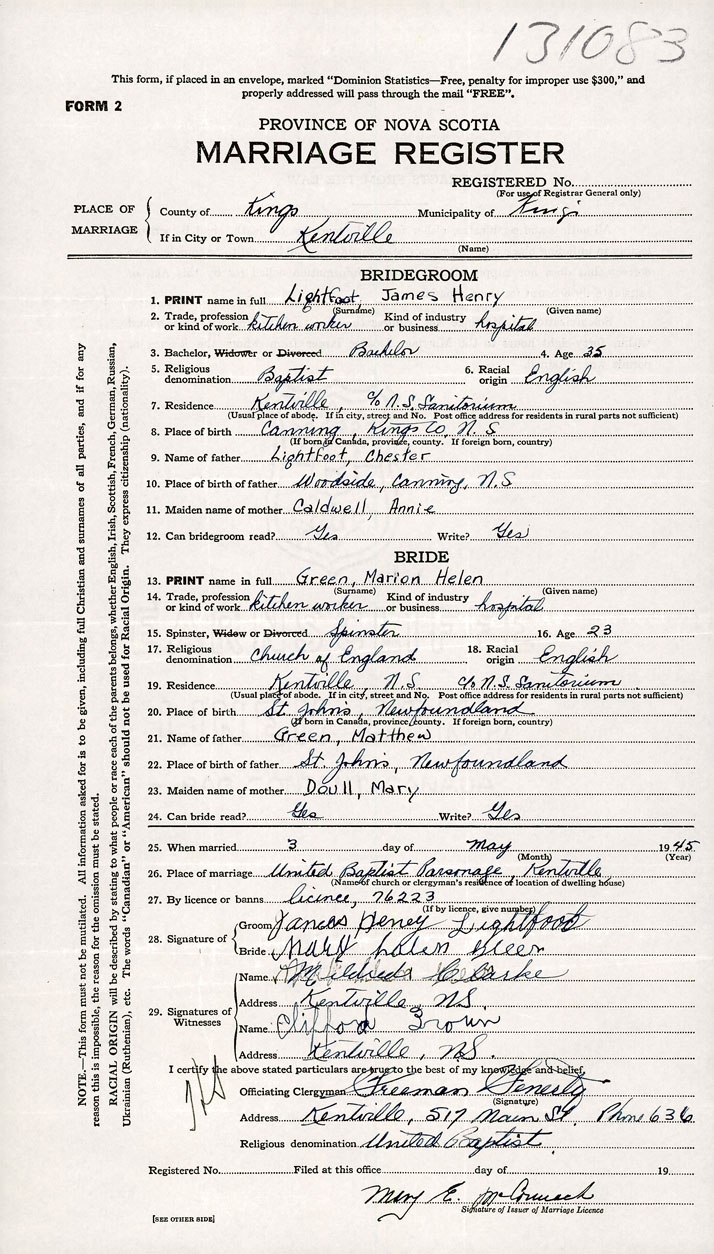 131083
This form, if placed in an envelope, marked "Dominion Statistics—Free, penalty for improper use $300," and
properly addressed will pass through the mail "FREE".
FORM 2
PROVINCE OF NOVA SCOTIA
MARRIAGE REGISTER
REGISTERED No.
(For use of Registrar General only)
PLACE OF MARRIAGE
County of Kings Municipality of Kings
If in City or Town Kentville
(Name)
BRIDEGROOM
1. PRINT name in full Lightfoot, James Henry
(Surname) (Given name)
2. Trade, profession or kind of work kitchen worker Kind of industry or business hospital
3. Bachelor, Widower or Divorced Bachelor 4. Age 35
5. Religious denomination Baptist 6. Racial origin English
7. Residence Kentville, c/o N.S. Sanitorium
(Usual place of abode. If in city, street and No. Post office address for residents in rural parts not sufficient)
8. Place of birth Canning, Kings Co, N. S
(If born in Canada, province, county. If foreign born, country)
9. Name of father Lightfoot, Chester
10. Place of birth of father Woodside, Canning, N.S
11. Maiden name of mother Caldwell, Annie
12. Can bridegroom read? Yes Write? Yes
BRIDE
13. PRINT name in full Green, Marion Helen
(Surname) (Given name)
14. Trade, profession or kind of work kitchen worker Kind of industry or business hospital
15. Spinster, Widow or Divorced Spinster 16. Age 23
17. Religious denomination Church of England 18. Racial origin English
19. Residence Kentville N.S. c/o N.S. Sanitorium
(Usual place of abode. If in city, street and No. Post office address for residents in rural parts not sufficient)
20. Place of birth St. John's, Newfoundland
(If born in Canada, province, county. If foreign born, country)
21. Name of father Green, Matthew
22. Place of birth of father St. John's, Newfoundland
23. Maiden name of mother Doull, Mary
24. Can bride read? Yes Write? Yes
25. When married 3 day of May 1945
(Month) (Year)
26. Place of marriage United Baptist Parsonage, Kentville
(Name of church or clergyman's residence or location of dwelling house)
27. By licence or banns licence, 76223
(If by licence, give number)
28. Signature of
Groom James Henry Lightfoot
Bride Mary helen Green
29. Signatures of Witnesses
Name Mildred Clarke
Address Kentville, N.S.
Name Clifford Brown
Address Kentville, N.S.
I certify the above stated particulars are true to the best of my knowledge and belief,
Officiating Clergyman Freeman Fenerty
(Signature)
Address Kentville, 517 Main St. Phone 636
Religious denomination United Baptist
Registered No. Filed at this office day of 19
Mary E. McCormack
Signature of Issuer of Marriage Licence
[SEE OTHER SIDE]
NOTE.—This form must not be mutilated. All information asked for is to be given, including full Christian and surnames of all parties, and if for any
reason this is impossible, the reason for the omission must be stated.
RACIAL ORIGIN will be described by stating to what people or race each of the parents belongs, whether English, Irish, Scottish, French, German, Russian,
Ukrainian (Ruthenian), etc. The words "Canadian" or "American" should not be used for Racial Origin. They express citizenship (nationality).